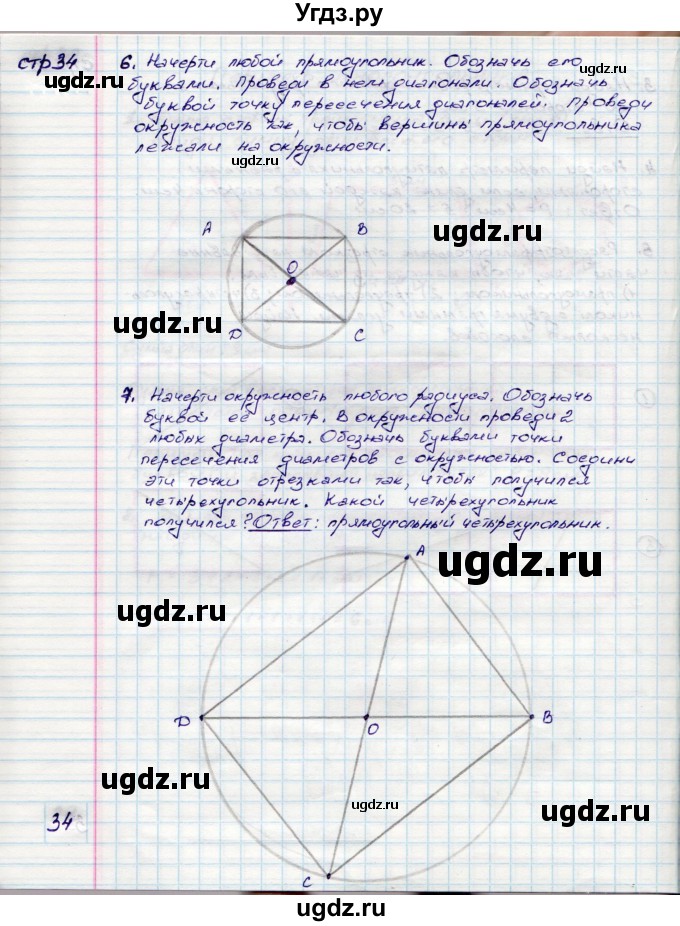 Угдз.ру
стр34
6. Начерти любой прямоугольник. Обозначь его
буквами. Проведи в нем диагонали. Обозначь
буквой точку пересечения диагоналей. Проведи
окружность так, чтобы вершины прямоугольника
лежали на окружности.
ugdz.ru
ugdz.ru
A B
ugdz.ru
O
ugdz.ru
D C
7. Начерти окружность любого радиуса. Обозначь
буквой её центр. В окружности проведи 2
любых диаметра. Обозначь буквами точки
пересечения диаметров с окружностью. Соедини
эти точки отрезками так, чтобы получился
четырехугольник. Какой четырехугольник
получился? Ответ: прямоугольный четырехугольник.
ugdz.ru
A
ugdz.ru
D O B
ugdz.ru
ugdz.ru
ugdz.ru
34
C
ugdz.ru